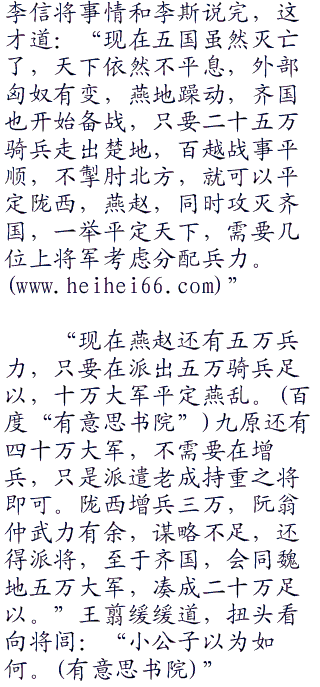 李信将事情和李斯说完，这
才道：“现在五国虽然灭亡
了，天下依然不平息，外部
匈奴有变，燕地躁动，齐国
也开始备战，只要二十五万
骑兵走出楚地，百越战事平
顺，不掣肘北方，就可以平
定陇西，燕赵，同时攻灭齐
国，一举平定天下，需要几
位上将军考虑分配兵力。
(www.heihei66.com)”
“现在燕赵还有五万兵
力，只要在派出五万骑兵足
以，十万大军平定燕乱。(百
度“有意思书院”)九原还有
四十万大军，不需要在增
兵，只是派遣老成持重之将
即可。陇西增兵三万，阮翁
仲武力有余，谋略不足，还
得派将，至于齐国，会同魏
地五万大军，凑成二十万足
以。”王翦缓缓道，扭头看
向将闾：“小公子以为如
何。(有意思书院)”